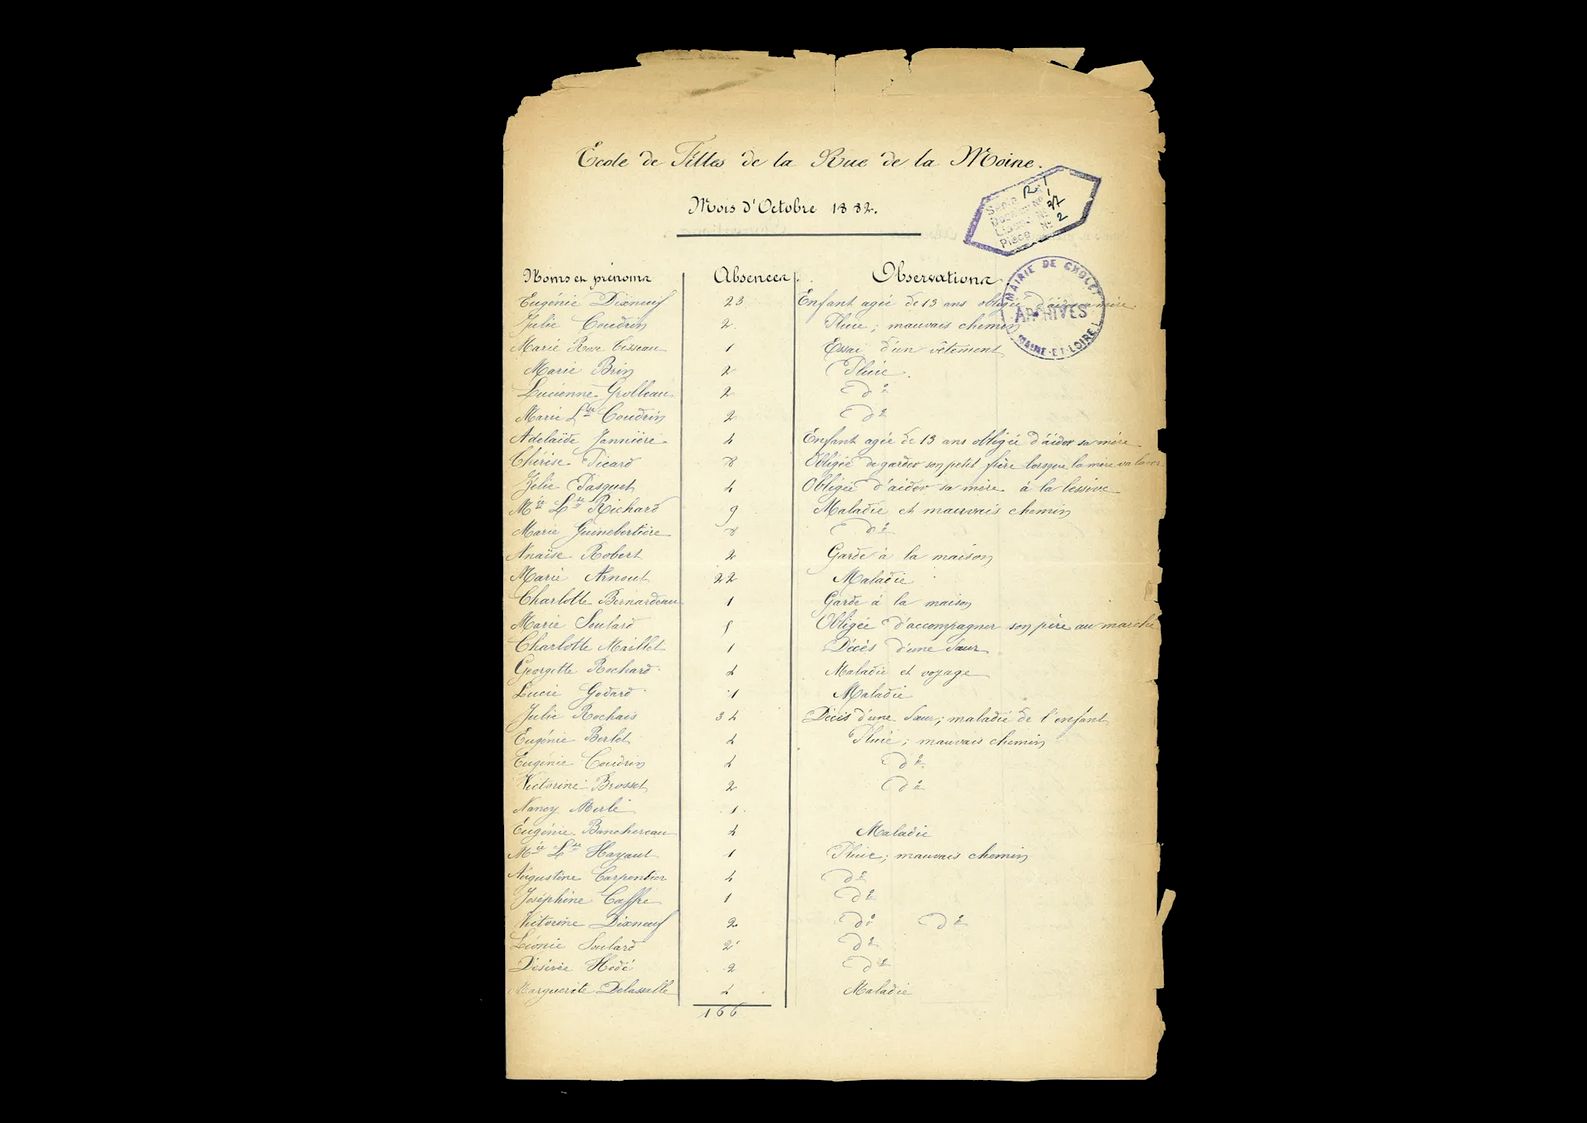 École de Filles de la Rue de la Moine.
Mois d'Octobre 1882.
Série R.1
Dossier N° 1
Liasse N° 37
Pièce N° 2
MAIRIE DE CHOLET
ARCHIVES
MAINE-ET-LOIRE
Noms et prénoms Absences Observations
Eugénie Dixneuf 23 Enfant agée de 13 ans obligée d'aider sa mère.
Julie Coudrin 2 Pluie ; mauvais chemin
Marie Rose Cisseau 1 Essai d'un vêtement
Marie Brin 2 Pluie
Lucienne Grolleau 2 d°
Marie Lse Coudrin 2 d°
Adelaïde Jannière 4 Enfant agée de 13 ans obligée d'aider sa mère
Thérèse Picard 8 Obligée de garder son petit frère lorsque la mère va laver
Zélie Pasquet 4 Obligée d'aider sa mère à la lessive
Mie Lse Richard 9 Maladie et mauvais chemin
Marie Guinebertière 8 d°
Anaïse Robert 2 Garde à la maison
Marie Arnout 22 Maladie
Charlotte Bernardeau 1 Garde à la maison
Marie Soulard Obligée d'accompagner son père au marché
Charlotte Maillet 1 Décès d'une sœur
Georgette Rochard 4 Maladie et voyage
Lucie Godard 1 Maladie
Julie Rochais 34 Décès d'une sœur ; maladie de l'enfant
Eugénie Berlot 4 Pluie ; mauvais chemin
Eugénie Coudrin 4 d°
Victorine Brosset 2 d°
Nancy Merlé 1
Eugénie Banchereau 4 Maladie
Mie Lse Hayaut 1 Pluie ; mauvais chemin
Augustine Carpentier 4 d°
Joséphine Caffre 1 d°
Victorine Dixneuf 2 d° d°
Léonie Soulard 2 d°
Désirée Hodé 2 d°
Marguerite Delasalle 4 Maladie
166